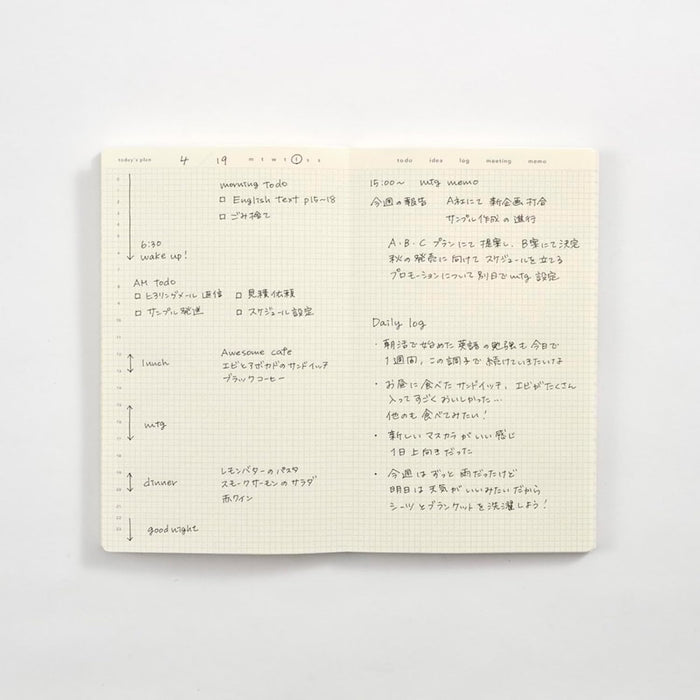 today's plan 4 / 19 m t w t f s s
morning todo
□ English text p15~18
□ ごみ捨て
6:30
wake up!
AM todo
□ ヒヤリングメール 返信 □ 見積依頼
□ サンプル発送 □ スケジュール設定
lunch
Awesome cafe
エビとアボカドのサンドイッチ
ブラックコーヒー
mtg
dinner
レモンバターのパスタ
スモークサーモンのサラダ
赤ワイン
good night
todo idea log meeting memo
15:00~ mtg memo
今週の報告 A社にて 新企画打合
サンプル作成の進行
A・B・C プランにて 提案し、B案にて決定
秋の発売に向けて スケジュールを立てる
プロモーションについて 別日でmtg 設定
Daily log
・朝活で始めた英語の勉強も今日で
1週間、この調子で続けていきたいな
・お昼に食べたサンドイッチ、エビがたくさん
入っててすごくおいしかった…
他のも食べてみたい！
・新しいマスカラがいい感じ
1日上向きだった
・今週はずっと雨だったけど
明日は天気がいいみたいだから
シーツとブランケットを洗濯しよう！